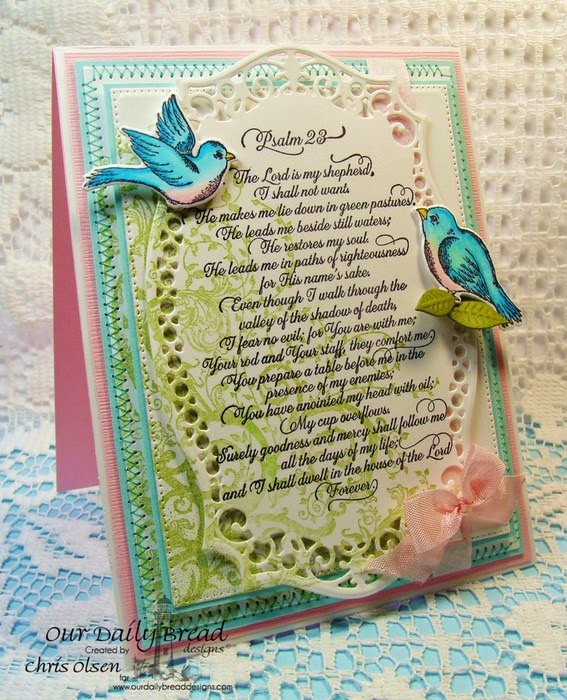 Psalm 23
The Lord is my shepherd,
I shall not want.
He makes me lie down in green pastures.
He leads me beside still waters;
He restores my soul.
He leads me in paths of righteousness
for His name's sake.
Even though I walk through the
valley of the shadow of death,
I fear no evil; for You are with me;
Your rod and Your staff, they comfort me.
You prepare a table before me in the
presence of my enemies;
You have anointed my head with oil;
My cup overflows.
Surely goodness and mercy shall follow me
all the days of my life;
and I shall dwell in the house of the Lord
Forever.
Our Daily Bread
designs
Created by
chris olsen
for
www.ourdailybreaddesigns.com